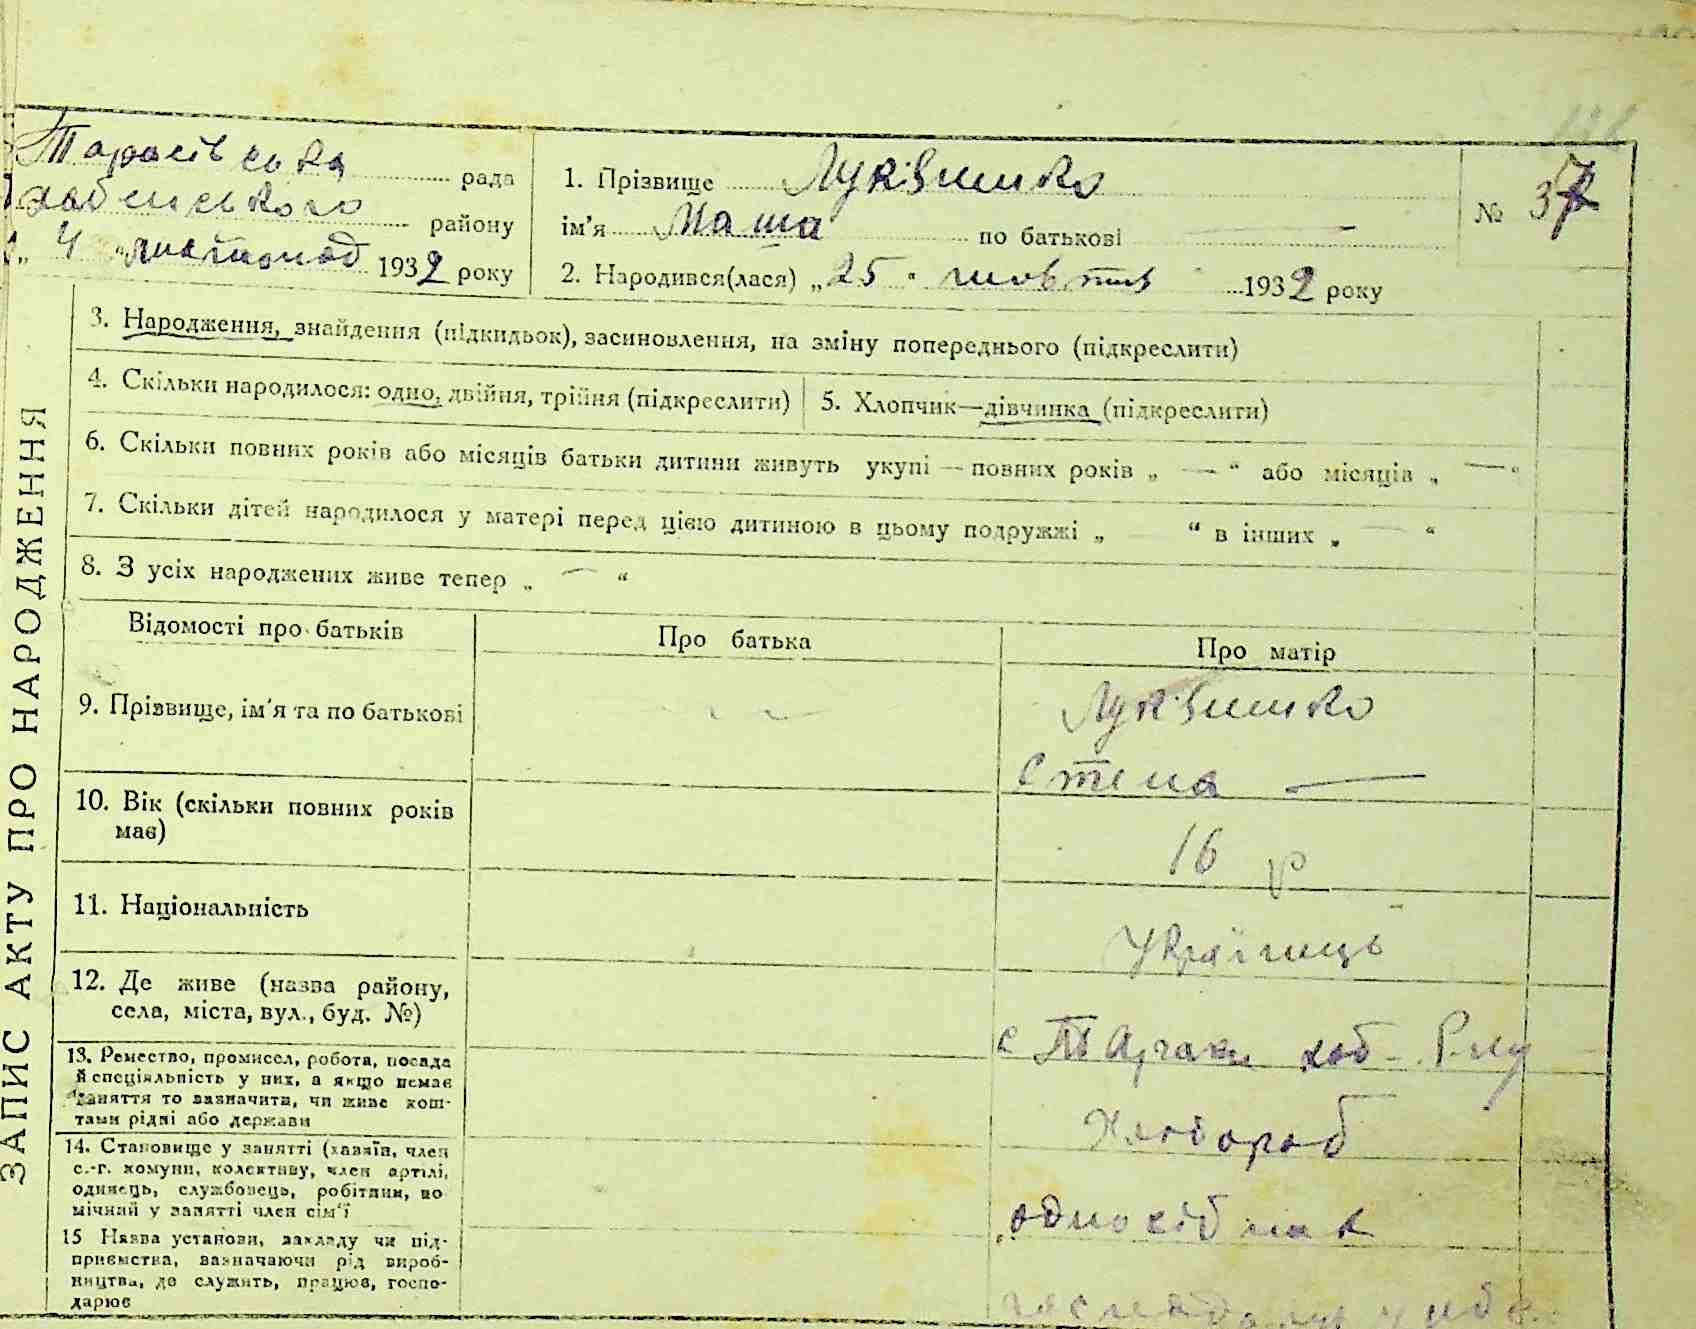 ЗАПИС АКТУ ПРО НАРОДЖЕННЯ
Тарасівська рада
хабенського району
„ 4 " листопад 1932 року
1. Прізвище Луківшико
ім'я Маша по батькові —
№ 37
2. Народився(лася) „25" жовтня 1932 року
3. Народження, знайдення (підкидьок), засиновлення, на зміну попереднього (підкреслити)
4. Скільки народилося: одно, двійня, трійня (підкреслити)
5. Хлопчик—дівчинка (підкреслити)
6. Скільки повних років або місяців батьки дитини живуть укупі — повних років „ — “ або місяців „ — “
7. Скільки дітей народилося у матері перед цією дитиною в цьому подружжі „ — “ в інших „ — “
8. З усіх народжених живе тепер „ — “
Відомості про батьків
Про батька
Про матір
9. Прізвище, ім'я та по батькові
Луківшико
Степа —
10. Вік (скільки повних років
має)
16 р
11. Національність
Україниць
12. Де живе (назва району,
села, міста, вул., буд. №)
с хаб- Р-ну
13. Ремество, промисел, робота, посада
й спеціяльність у них, а якщо немає
заняття то зазначити, чи живе кош-
тами рідні або держави
Хлібороб
14. Становище у занятті (хазяїн, член
с.-г. комуни, колективу, член артілі,
одинець, службовець, робітник, по
мічний у занятті член сім'ї
одноосібник
15 Назва установи, закладу чи під-
приємства, зазначаючи рід вироб-
ництва, де служить, працює, госпо-
дарює